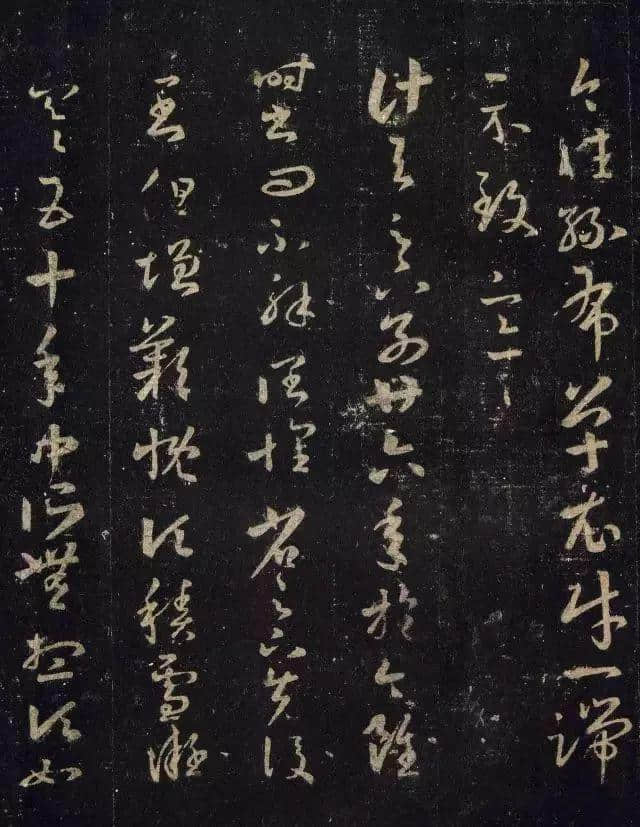 今往絲布單衣財一端
示致意
計與足下別廿六年於今雖
時書問不解闊懷省足下先後
二書但增歎慨頃積雪凝
寒五十年中所無想頃如